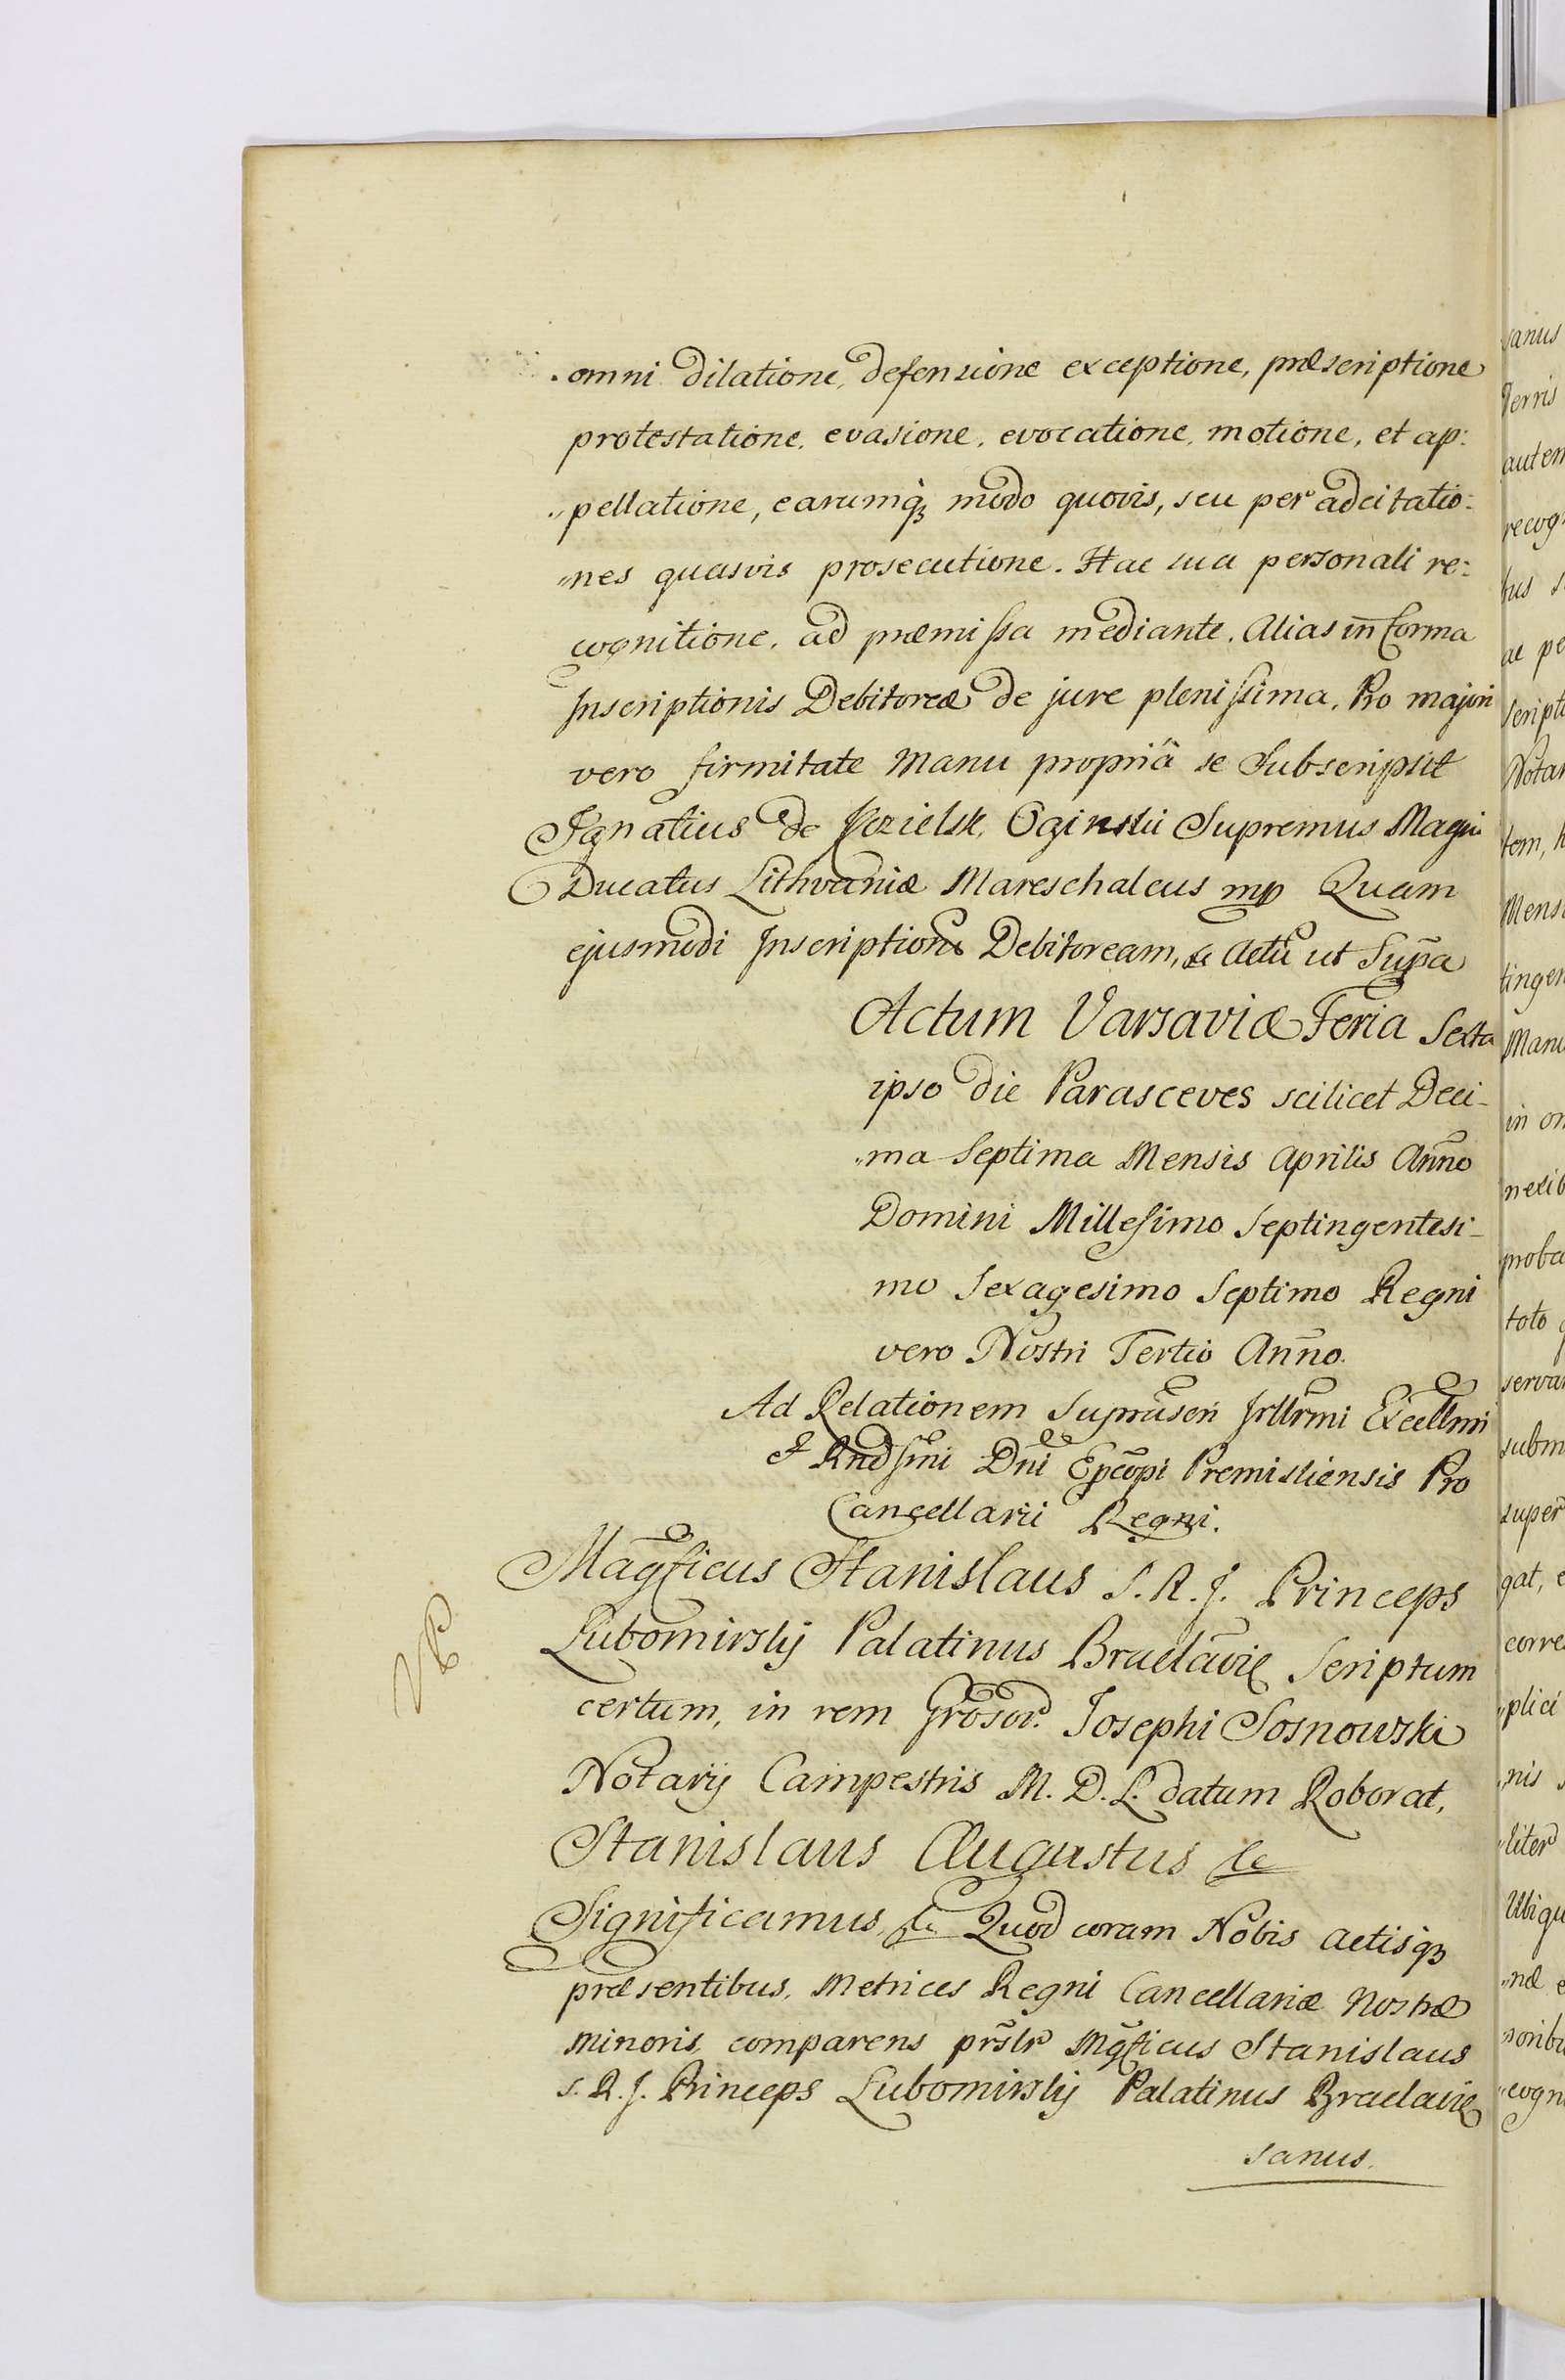 omni dilatione, defensione exceptione, præscriptione
protestatione, evasione, evocatione, motione, et ap:
„pellatione, earumq̃ꝫ modo quovis, seu per adcitatio:
„nes quasvis prosecutione. Hac sua personali re:
cognitione, ad præmissa mediante. Alias in forma
Inscriptionis Debitoreæ de jure plenissima. Pro majori
vero firmitate manu propriâ se Subscripsit
Ignatius de Kozielsk Oginskii Supremus Magni
Ducatus Lithvaniæ Mareschalcus mp Quam
ejusmodi Inscriptione Debitoream, &c Actũ ut Supã
Actum Varsaviæ Feria Sexta
ipso die Parasceves scilicet Deci-
„ma Septima Mensis Aprilis Añno
Domini Millesimo Septingentesi-
mo Sexagesimo Septimo Regni
vero Nostri Tertio Añno.
Ad Relationem Suprascri Jrllrmi Excellmi
& Rndssmi Dñi Epcopi Premisliensis Pro
Cancellarii Regni.
Magficus Stanislaus S. R. J. Princeps
Lubomirsky Palatinus Braclavię Scriptum
certum, in rem Grosor. Josephi Sosnowski
Notarij Campestris M. D. L. datum Roborat.
Stanislaus Augustus &c
Significamus, &c Quod coram Nobis Actisqꝫ
præsentibus, Metrices Regni Cancellariæ Nostræ
minoris, comparens prslr Mgficus Stanislaus
S. R. J. Princeps Lubomirsky Palatinus Braclavię
sanus.
sanus
Terris
autem
recog
bus
ac pe
Scripti
Notar
tem,
Mens
tingen
Manu
in on
nexib
proba
toto
servan
subm
super
gat, e
corre
„plici
„nis
„liter
Ubiqu
„næ e
noribu
„cogn